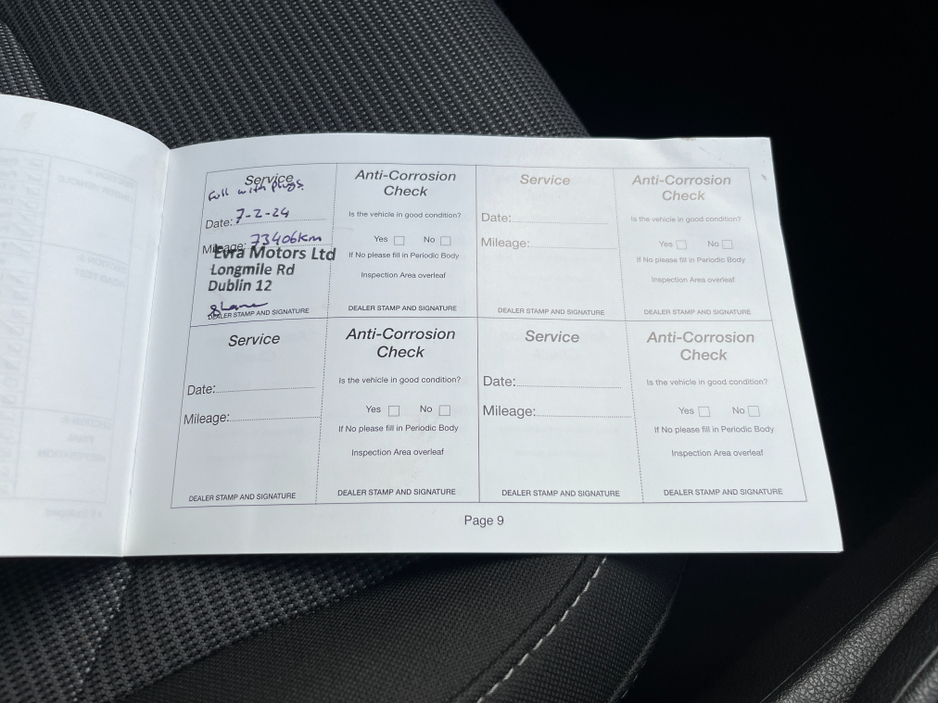 Service
Full with plugs
Date: 7-2-24
Mileage: 73406km
Evra Motors Ltd
Longmile Rd
Dublin 12
DEALER STAMP AND SIGNATURE
Anti-Corrosion
Check
Is the vehicle in good condition?
Yes No
If No please fill in Periodic Body
Inspection Area overleaf
DEALER STAMP AND SIGNATURE
Service
Date:
Mileage:
DEALER STAMP AND SIGNATURE
Anti-Corrosion
Check
Is the vehicle in good condition?
Yes No
If No please fill in Periodic Body
Inspection Area overleaf
DEALER STAMP AND SIGNATURE
Service
Date:
Mileage:
DEALER STAMP AND SIGNATURE
Anti-Corrosion
Check
Is the vehicle in good condition?
Yes No
If No please fill in Periodic Body
Inspection Area overleaf
DEALER STAMP AND SIGNATURE
Service
Date:
Mileage:
DEALER STAMP AND SIGNATURE
Anti-Corrosion
Check
Is the vehicle in good condition?
Yes No
If No please fill in Periodic Body
Inspection Area overleaf
DEALER STAMP AND SIGNATURE
Page 9